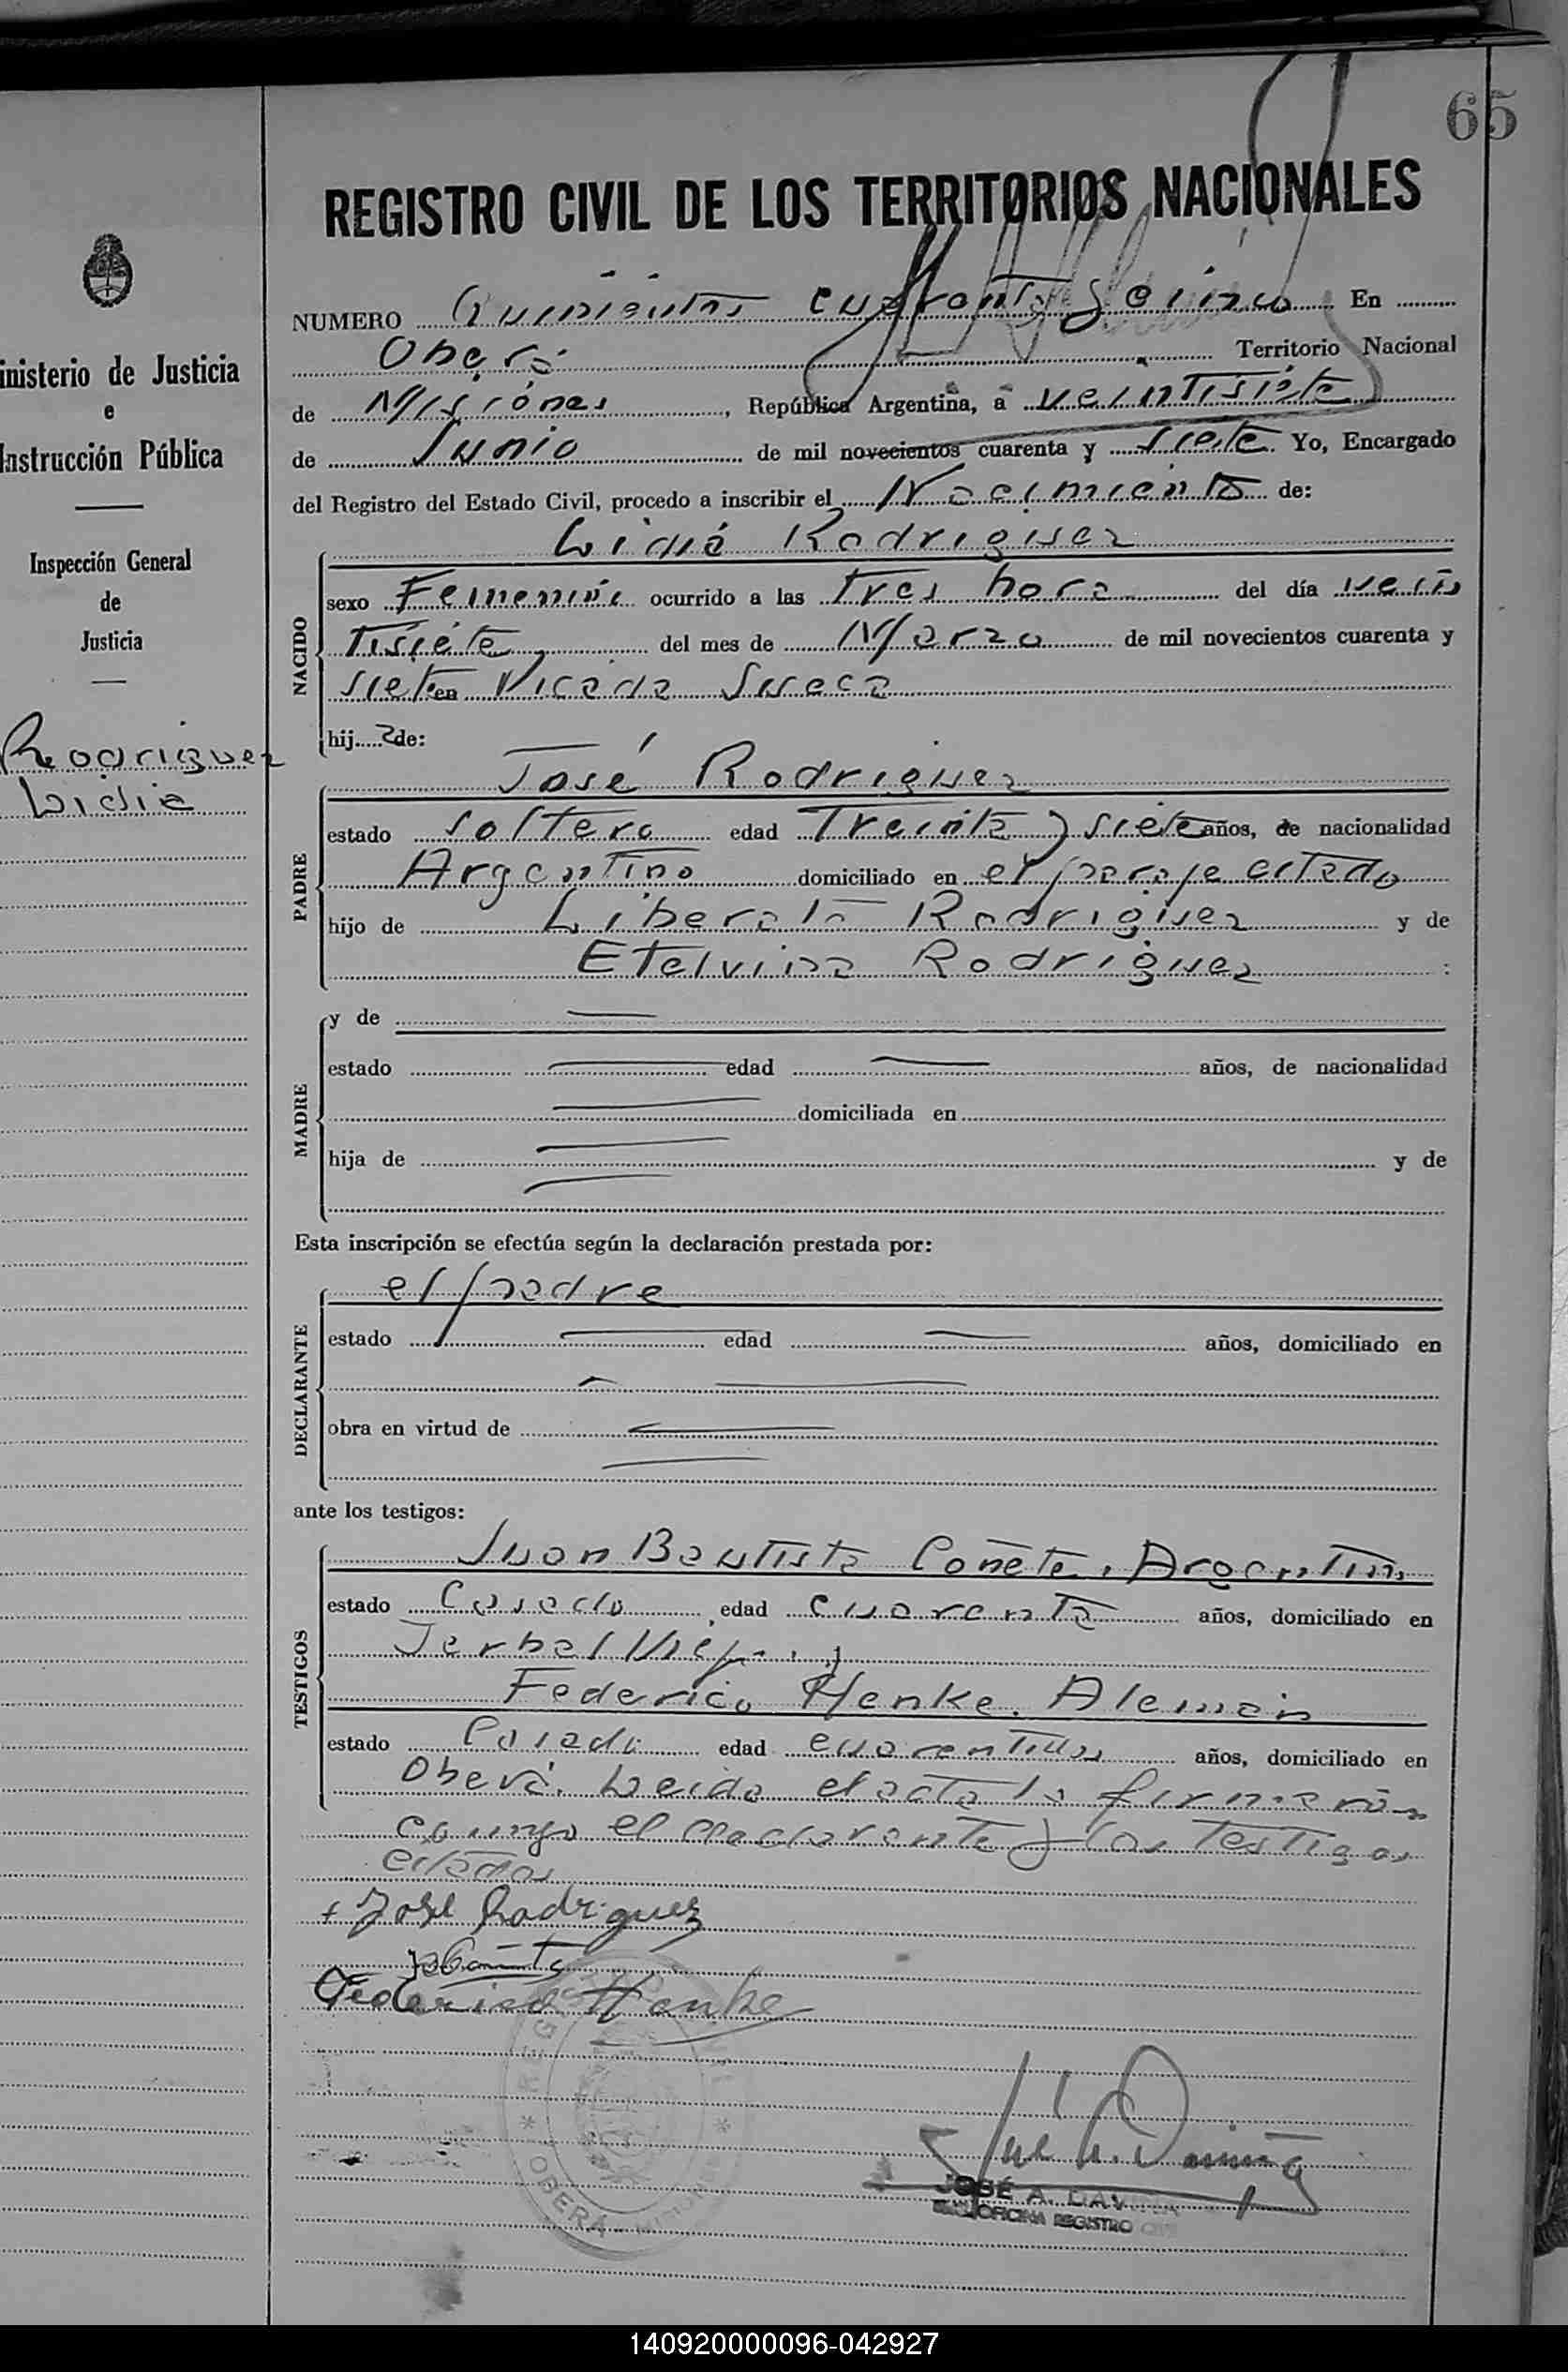 65
REGISTRO CIVIL DE LOS TERRITORIOS NACIONALES
NUMERO Quinientos cuarenta y cinco En
Oberá Territorio Nacional
de Misiones, República Argentina, a veintisiete
de Junio de mil novecientos cuarenta y siete. Yo, Encargado
del Registro del Estado Civil, procedo a inscribir el Nacimiento de:
Lidia Rodriguez
NACIDO
sexo Femenino ocurrido a las tres hora del día vein
tisiete del mes de Marzo de mil novecientos cuarenta y
siete en Picada Sueca
hij a de:
José Rodriguez
PADRE
estado soltero edad Treinta y siete años, de nacionalidad
Argentino domiciliado en el paraje citado
hijo de Liberato Rodriguez y de
Etelvina Rodriguez :
MADRE
y de
estado edad años, de nacionalidad
domiciliada en
hija de y de
Esta inscripción se efectúa según la declaración prestada por:
DECLARANTE
el padre
estado edad años, domiciliado en
obra en virtud de
ante los testigos:
TESTIGOS
Juan Bautista Cañete, Argentino
estado Casado, edad cuarenta años, domiciliado en
Yerbal Viejo y
Federico Henke. Alemán
estado Casado edad cuarentidos años, domiciliado en
Oberá. Leida el acta la firmaron
conmigo el declarante y los testigos
citados
+ José Rodriguez
Federico Henke
JOSÉ A.
OFICINA REGISTRO
OBERÁ
inisterio de Justicia
e
Instrucción Pública
Inspección General
de
Justicia
Rodriguez
Lidia
140920000096-042927